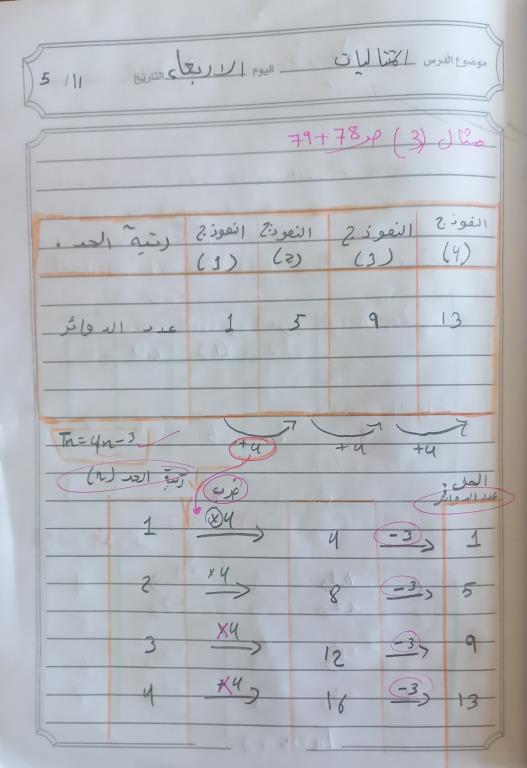 موضوع الدرس المتتاليات اليوم الاربعاء التاريخ 11/ 5
مثال (3) ص 78+79
رتبة الحد. النموذج (1) النموذج (2) النموذج (3) النموذج (4)
عدد الدوائر 1 5 9 13
+4 +4 +4
Tn=4n-3
الحل:
رتبة الحد (n) ضرب عدد الدوائر
1 ×4 4 -3 1
2 ×4 8 -3 5
3 ×4 12 -3 9
4 ×4 16 -3 13